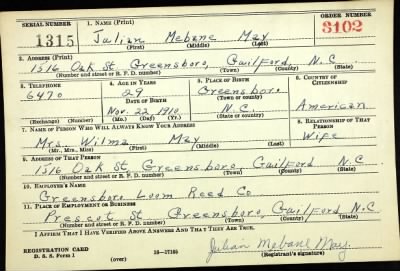 SERIAL NUMBER
1. NAME (Print)
ORDER NUMBER
1315
Julian Mebane May
3102
(First) (Middle) (Last)
2. ADDRESS (Print)
1516 Oak St Greensboro, Guilford N.C.
(Number and street or R. F. D. number) (Town) (County) (State)
3. TELEPHONE
4. AGE IN YEARS
5. PLACE OF BIRTH
6. COUNTRY OF CITIZENSHIP
6470
29
Greensboro
DATE OF BIRTH
(Town or county)
Nov. 22, 1910
N.C.
American
(Exchange) (Number)
(Mo.) (Day) (Yr.)
(State or country)
7. NAME OF PERSON WHO WILL ALWAYS KNOW YOUR ADDRESS
8. RELATIONSHIP OF THAT PERSON
Mrs. Wilma May
Wife
(Mr., Mrs., Miss) (First) (Middle) (Last)
9. ADDRESS OF THAT PERSON
1516 Oak St Greensboro Guilford N.C.
(Number and street or R. F. D. number) (Town) (County) (State)
10. EMPLOYER'S NAME
Greensboro Loom Reed Co
11. PLACE OF EMPLOYMENT OR BUSINESS
Prescot St Greensboro, Guilford N.C
(Number and street or R. F. D. number) (Town) (County) (State)
I AFFIRM THAT I HAVE VERIFIED ABOVE ANSWERS AND THAT THEY ARE TRUE.
REGISTRATION CARD
D. S. S. Form 1
(over)
16—17105
Julian Mebane May.
(Registrant's signature)